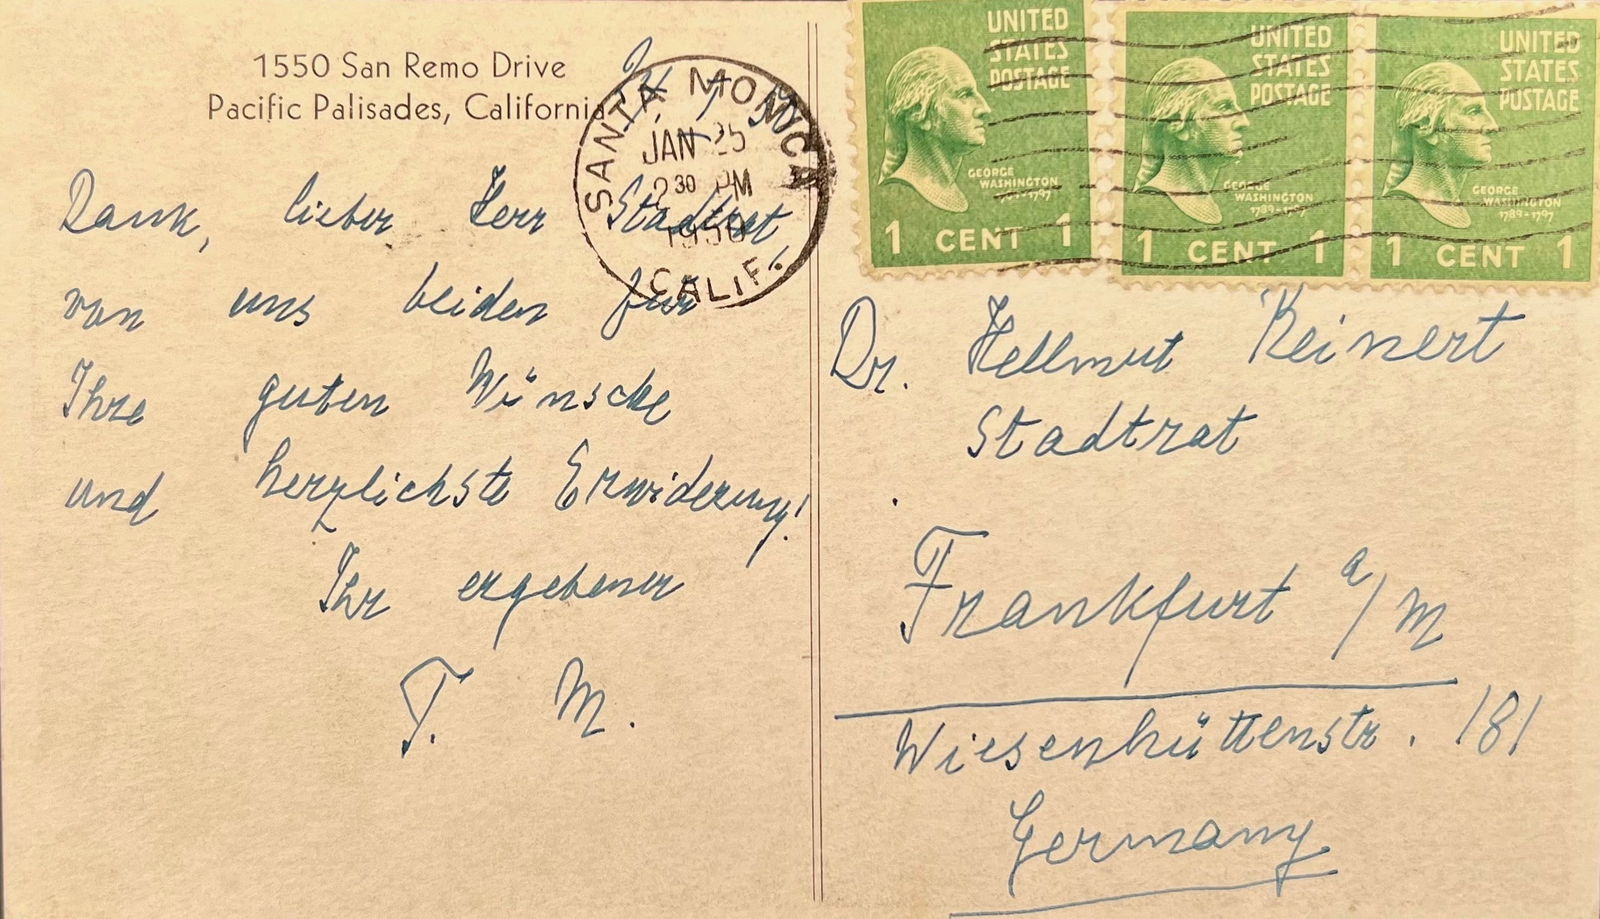 1550 San Remo Drive
Pacific Palisades, California
SANTA MONICA
JAN 25
2 30 PM
1950
CALIF.
Dank, lieber Herr Stadtrat,
von uns beiden für
Ihre guten Wünsche
und herzlichste Erwiderung!
Ihr ergebener
T. M.
UNITED
STATES
POSTAGE
GEORGE
WASHINGTON
1789-1797
1 CENT 1
UNITED
STATES
POSTAGE
GEORGE
WASHINGTON
1789-1797
1 CENT 1
UNITED
STATES
POSTAGE
GEORGE
WASHINGTON
1789-1797
1 CENT 1
Dr. Hellmut Reinert
Stadtrat
Frankfurt a/M
Wiesenhüttenstr. 181
Germany